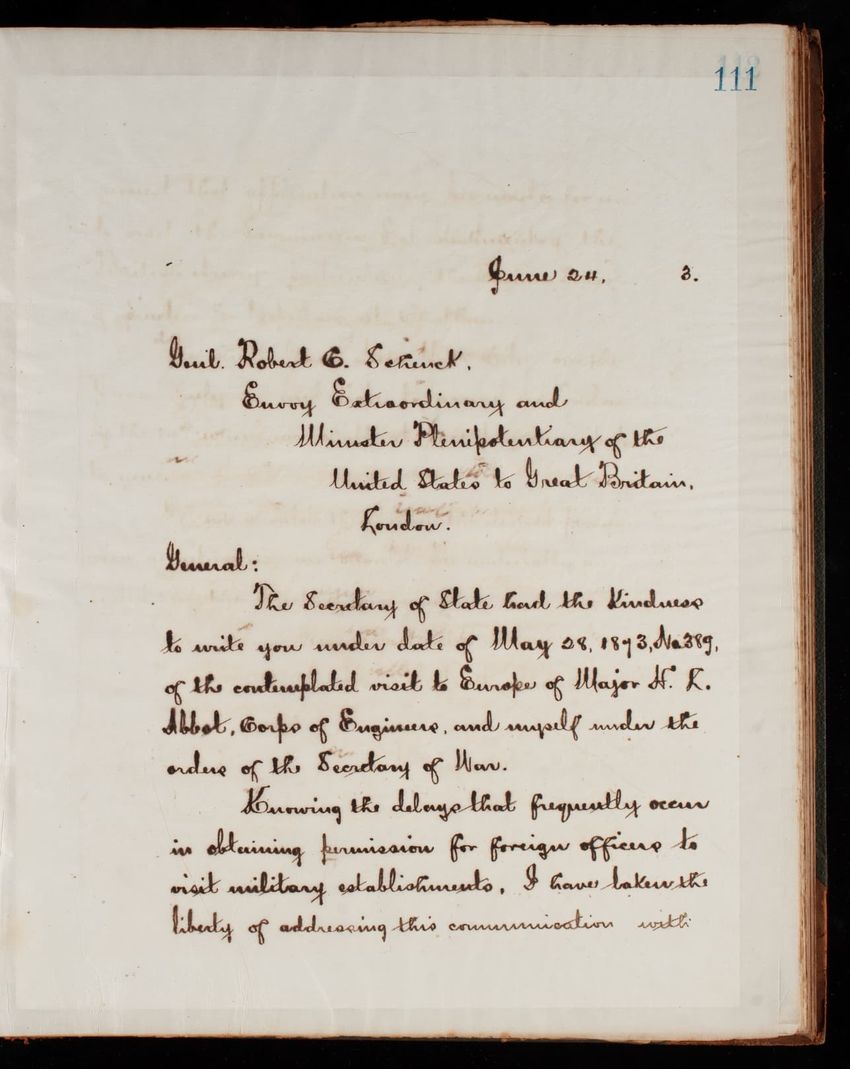 111
June 24, 3.
Genl. Robert C. Schenck,
Envoy Extraordinary and
Minister Plenipotentiary of the
United States to Great Britain,
London.
General:
The Secretary of State had the kindness
to write you under date of May 28, 1873, No 389,
of the contemplated visit to Europe of Major H. L.
Abbot, Corps of Engineers, and myself under the
orders of the Secretary of War.
Knowing the delays that frequently occur
in obtaining permission for foreign officers to
visit military establishments, I have taken the
liberty of addressing this communication with